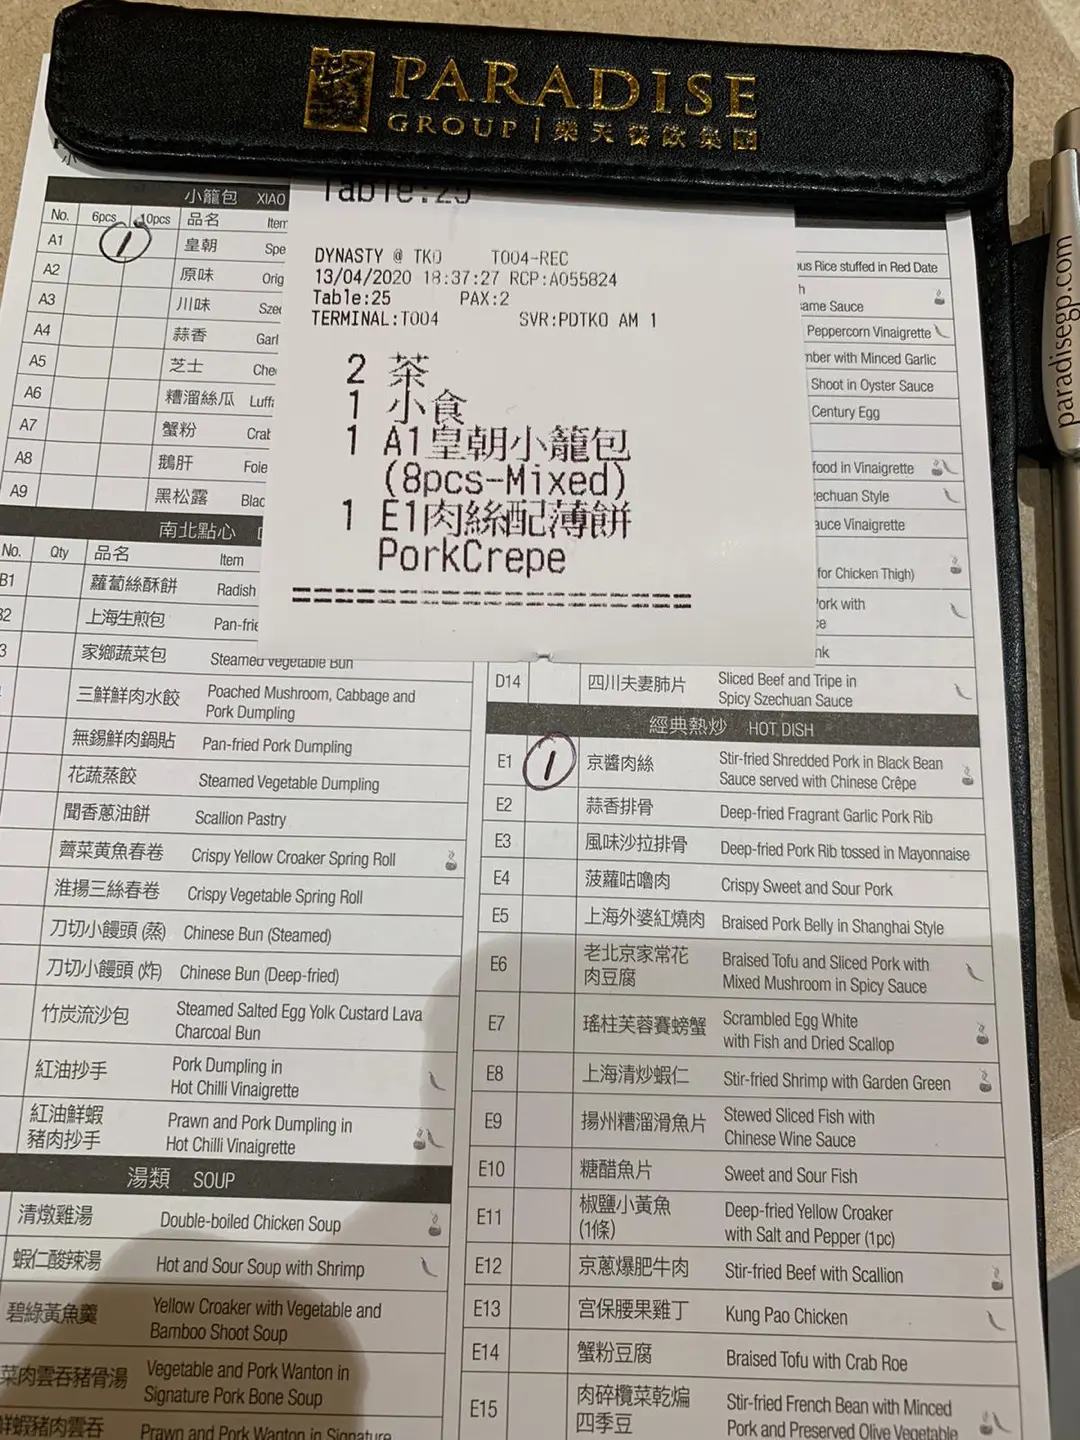 PARADISE
GROUP | 樂天餐飲集團
Table:25
DYNASTY @ TKO T004-REC
13/04/2020 18:37:27 RCP:A055824
Table:25 PAX:2
TERMINAL:T004 SVR:PDTKO AM 1
2 茶
1 小食
1 A1皇朝小籠包
(8pcs-Mixed)
1 E1肉絲配薄餅
PorkCrepe
paradisegp.com
小籠包 XIAO
No. 6pcs 10pcs 品名 Item
A1 1 皇朝 Spe
A2 原味 Orig
A3 川味 Sze
A4 蒜香 Garl
A5 芝士 Che
A6 糟溜絲瓜 Luffa
A7 蟹粉 Crab
A8 鵝肝 Foie
A9 黑松露 Blac
南北點心
No. Qty 品名 Item
B1 蘿蔔絲酥餅 Radish
上海生煎包 Pan-frie
家鄉蔬菜包 Steamed Vegetable Bun
三鮮鮮肉水餃 Poached Mushroom, Cabbage and
Pork Dumpling
無錫鮮肉鍋貼 Pan-fried Pork Dumpling
花蔬蒸餃 Steamed Vegetable Dumpling
聞香蔥油餅 Scallion Pastry
薺菜黄魚春卷 Crispy Yellow Croaker Spring Roll
淮揚三絲春卷 Crispy Vegetable Spring Roll
刀切小饅頭 (蒸) Chinese Bun (Steamed)
刀切小饅頭 (炸) Chinese Bun (Deep-fried)
竹炭流沙包 Steamed Salted Egg Yolk Custard Lava
Charcoal Bun
紅油抄手 Pork Dumpling in
Hot Chilli Vinaigrette
紅油鮮蝦
豬肉抄手 Prawn and Pork Dumpling in
Hot Chilli Vinaigrette
湯類 SOUP
清燉雞湯 Double-boiled Chicken Soup
蝦仁酸辣湯 Hot and Sour Soup with Shrimp
碧綠黃魚羹 Yellow Croaker with Vegetable and
Bamboo Shoot Soup
菜肉雲吞豬骨湯 Vegetable and Pork Wanton in
Signature Pork Bone Soup
鮮蝦豬肉雲吞 Prawn and Pork Wanton in Signature
Rice stuffed in Red Date
ame Sauce
Peppercorn Vinaigrette
ber with Minced Garlic
Shoot in Oyster Sauce
Century Egg
food in Vinaigrette
zechuan Style
auce Vinaigrette
for Chicken Thigh)
Pork with
D14 四川夫妻肺片 Sliced Beef and Tripe in
Spicy Szechuan Sauce
經典熱炒 HOT DISH
E1 1 京醬肉絲 Stir-fried Shredded Pork in Black Bean
Sauce served with Chinese Crêpe
E2 蒜香排骨 Deep-fried Fragrant Garlic Pork Rib
E3 風味沙拉排骨 Deep-fried Pork Rib tossed in Mayonnaise
E4 菠蘿咕嚕肉 Crispy Sweet and Sour Pork
E5 上海外婆紅燒肉 Braised Pork Belly in Shanghai Style
E6 老北京家常花
肉豆腐 Braised Tofu and Sliced Pork with
Mixed Mushroom in Spicy Sauce
E7 瑤柱芙蓉賽螃蟹 Scrambled Egg White
with Fish and Dried Scallop
E8 上海清炒蝦仁 Stir-fried Shrimp with Garden Green
E9 揚州糟溜滑魚片 Stewed Sliced Fish with
Chinese Wine Sauce
E10 糖醋魚片 Sweet and Sour Fish
E11 椒鹽小黃魚
(1條) Deep-fried Yellow Croaker
with Salt and Pepper (1pc)
E12 京蔥爆肥牛肉 Stir-fried Beef with Scallion
E13 宮保腰果雞丁 Kung Pao Chicken
E14 蟹粉豆腐 Braised Tofu with Crab Roe
E15 肉碎欖菜乾煸
四季豆 Stir-fried French Bean with Minced
Pork and Preserved Olive Vegetable